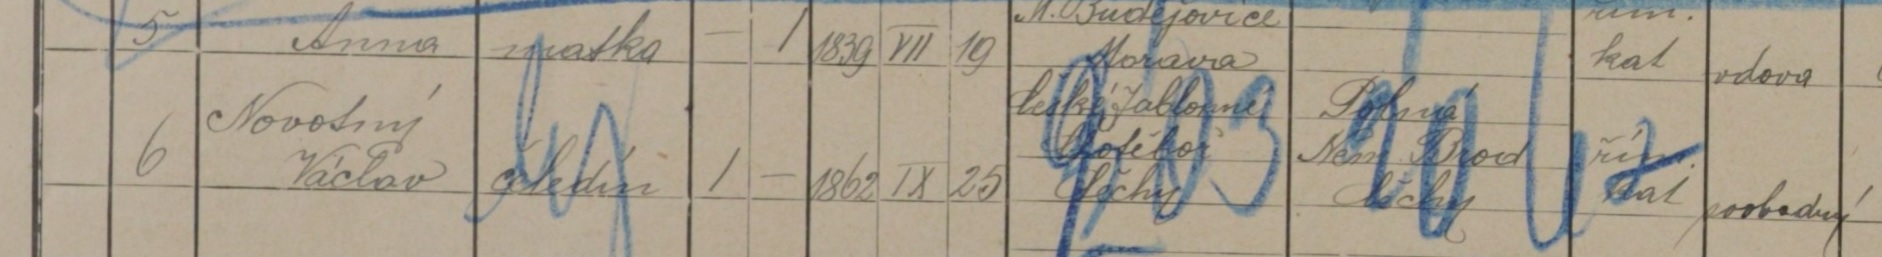 5 Anna matka — 1 1839 VII 19 M. Budějovice Morava řím. kat vdova
6 Novotný Václav čeledín 1 — 1862 IX 25 Český Jablonné Chotěboř Čechy Polná Něm. Brod Čechy řím. kat svobodný